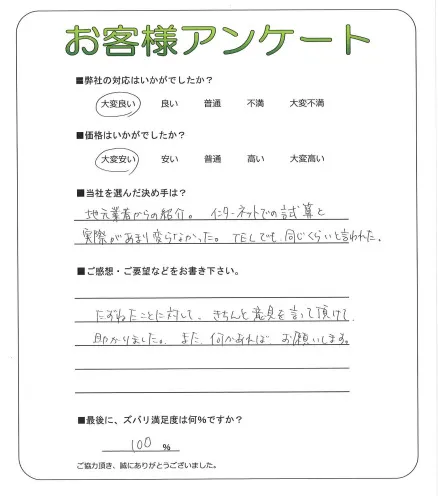 お客様アンケート
■弊社の対応はいかがでしたか？
大変良い 良い 普通 不満 大変不満
■価格はいかがでしたか？
大変安い 安い 普通 高い 大変高い
■当社を選んだ決め手は？
地元業者からの紹介。 インターネットでの試算と
実際があまり変らなかった。 TELでも同じくらいと言われた。
■ご感想・ご要望などをお書き下さい。
たずねたことに対して、きちんと意見を言って頂けて
助かりました。また、何かあれば、お願いします。
■最後に、ズバリ満足度は何％ですか？
100 %
ご協力頂き、誠にありがとうございました。